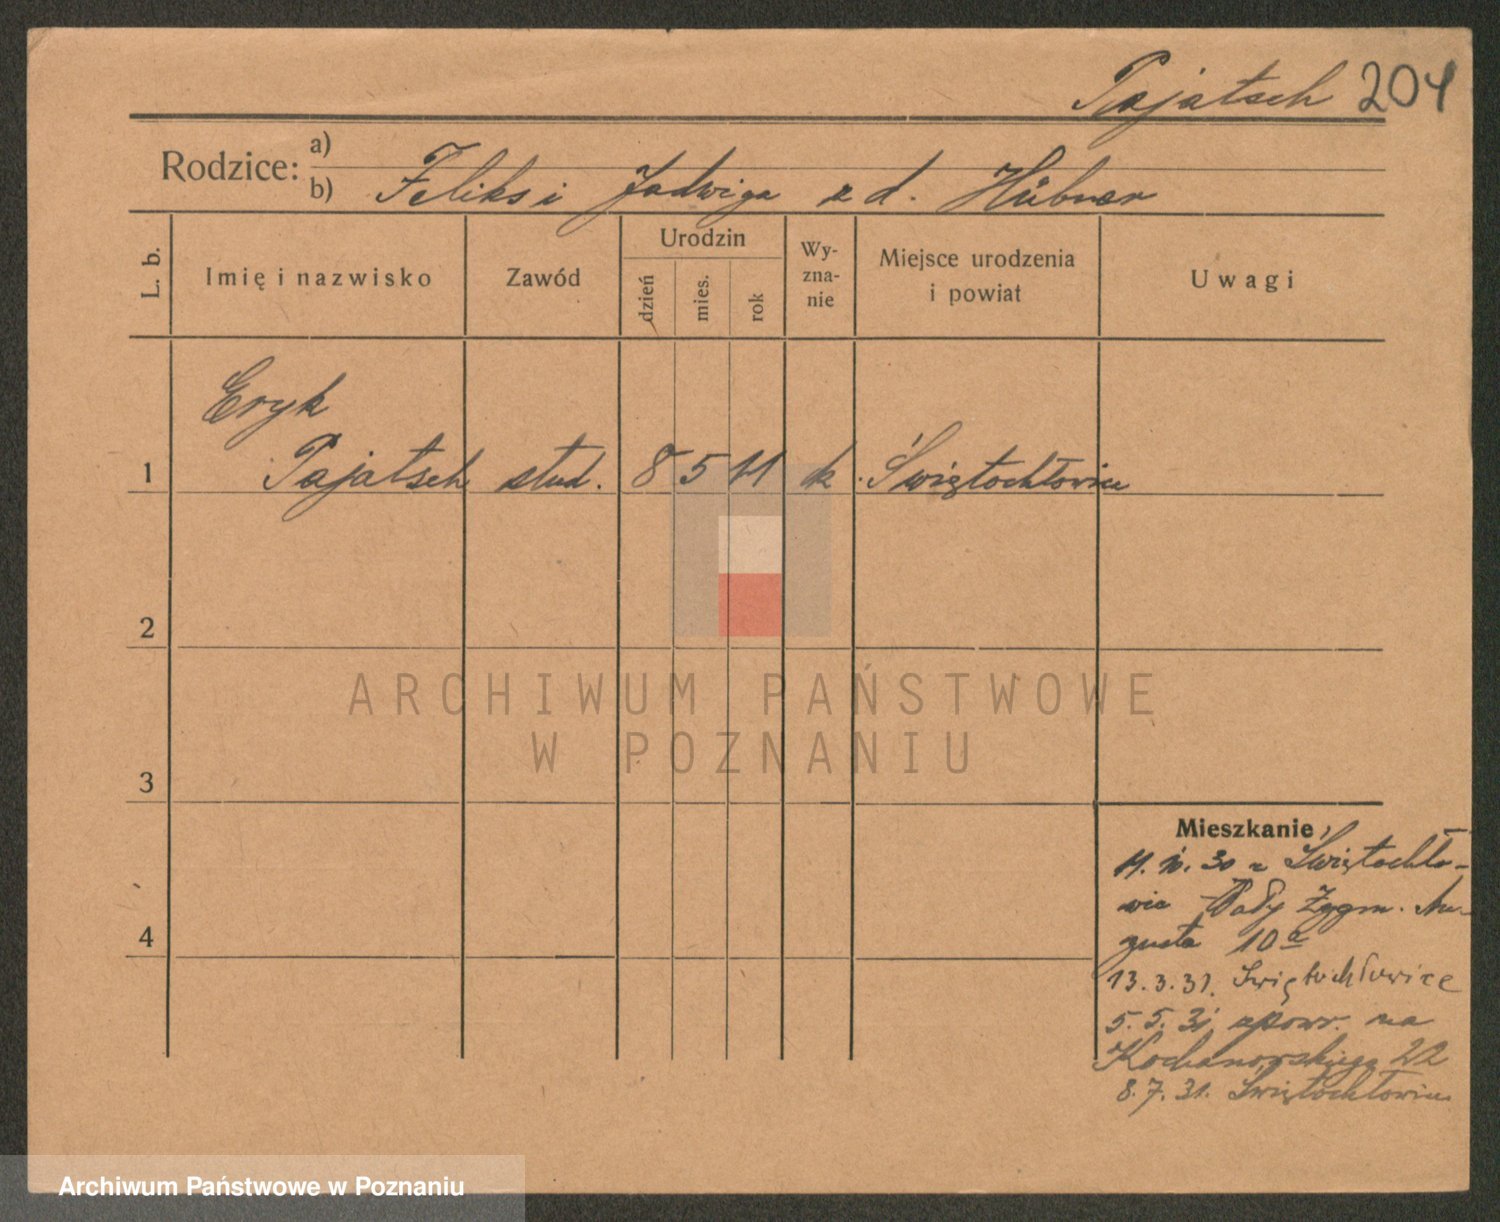 Pajatsch 204
Rodzice:
a)
b) Feliks i Jadwiga z d. Hübner
L. b.
Imię i nazwisko
Zawód
Urodzin
dzień
mies.
rok
Wy-
zna-
nie
Miejsce urodzenia
i powiat
Uwagi
Eryk
1 Pajatsch stud. 8 5 11 k. Świętochłowice
2
3
4
ARCHIWUM PAŃSTWOWE
W POZNANIU
Mieszkanie
30 z Świętochło-
wic Zygm. Au-
gusta 10a
13.3.31. Świętochłowice
5.5.31 zpowr. na
Kochanowskiego 22
8.7.31. Świętochłowice
Archiwum Państwowe w Poznaniu